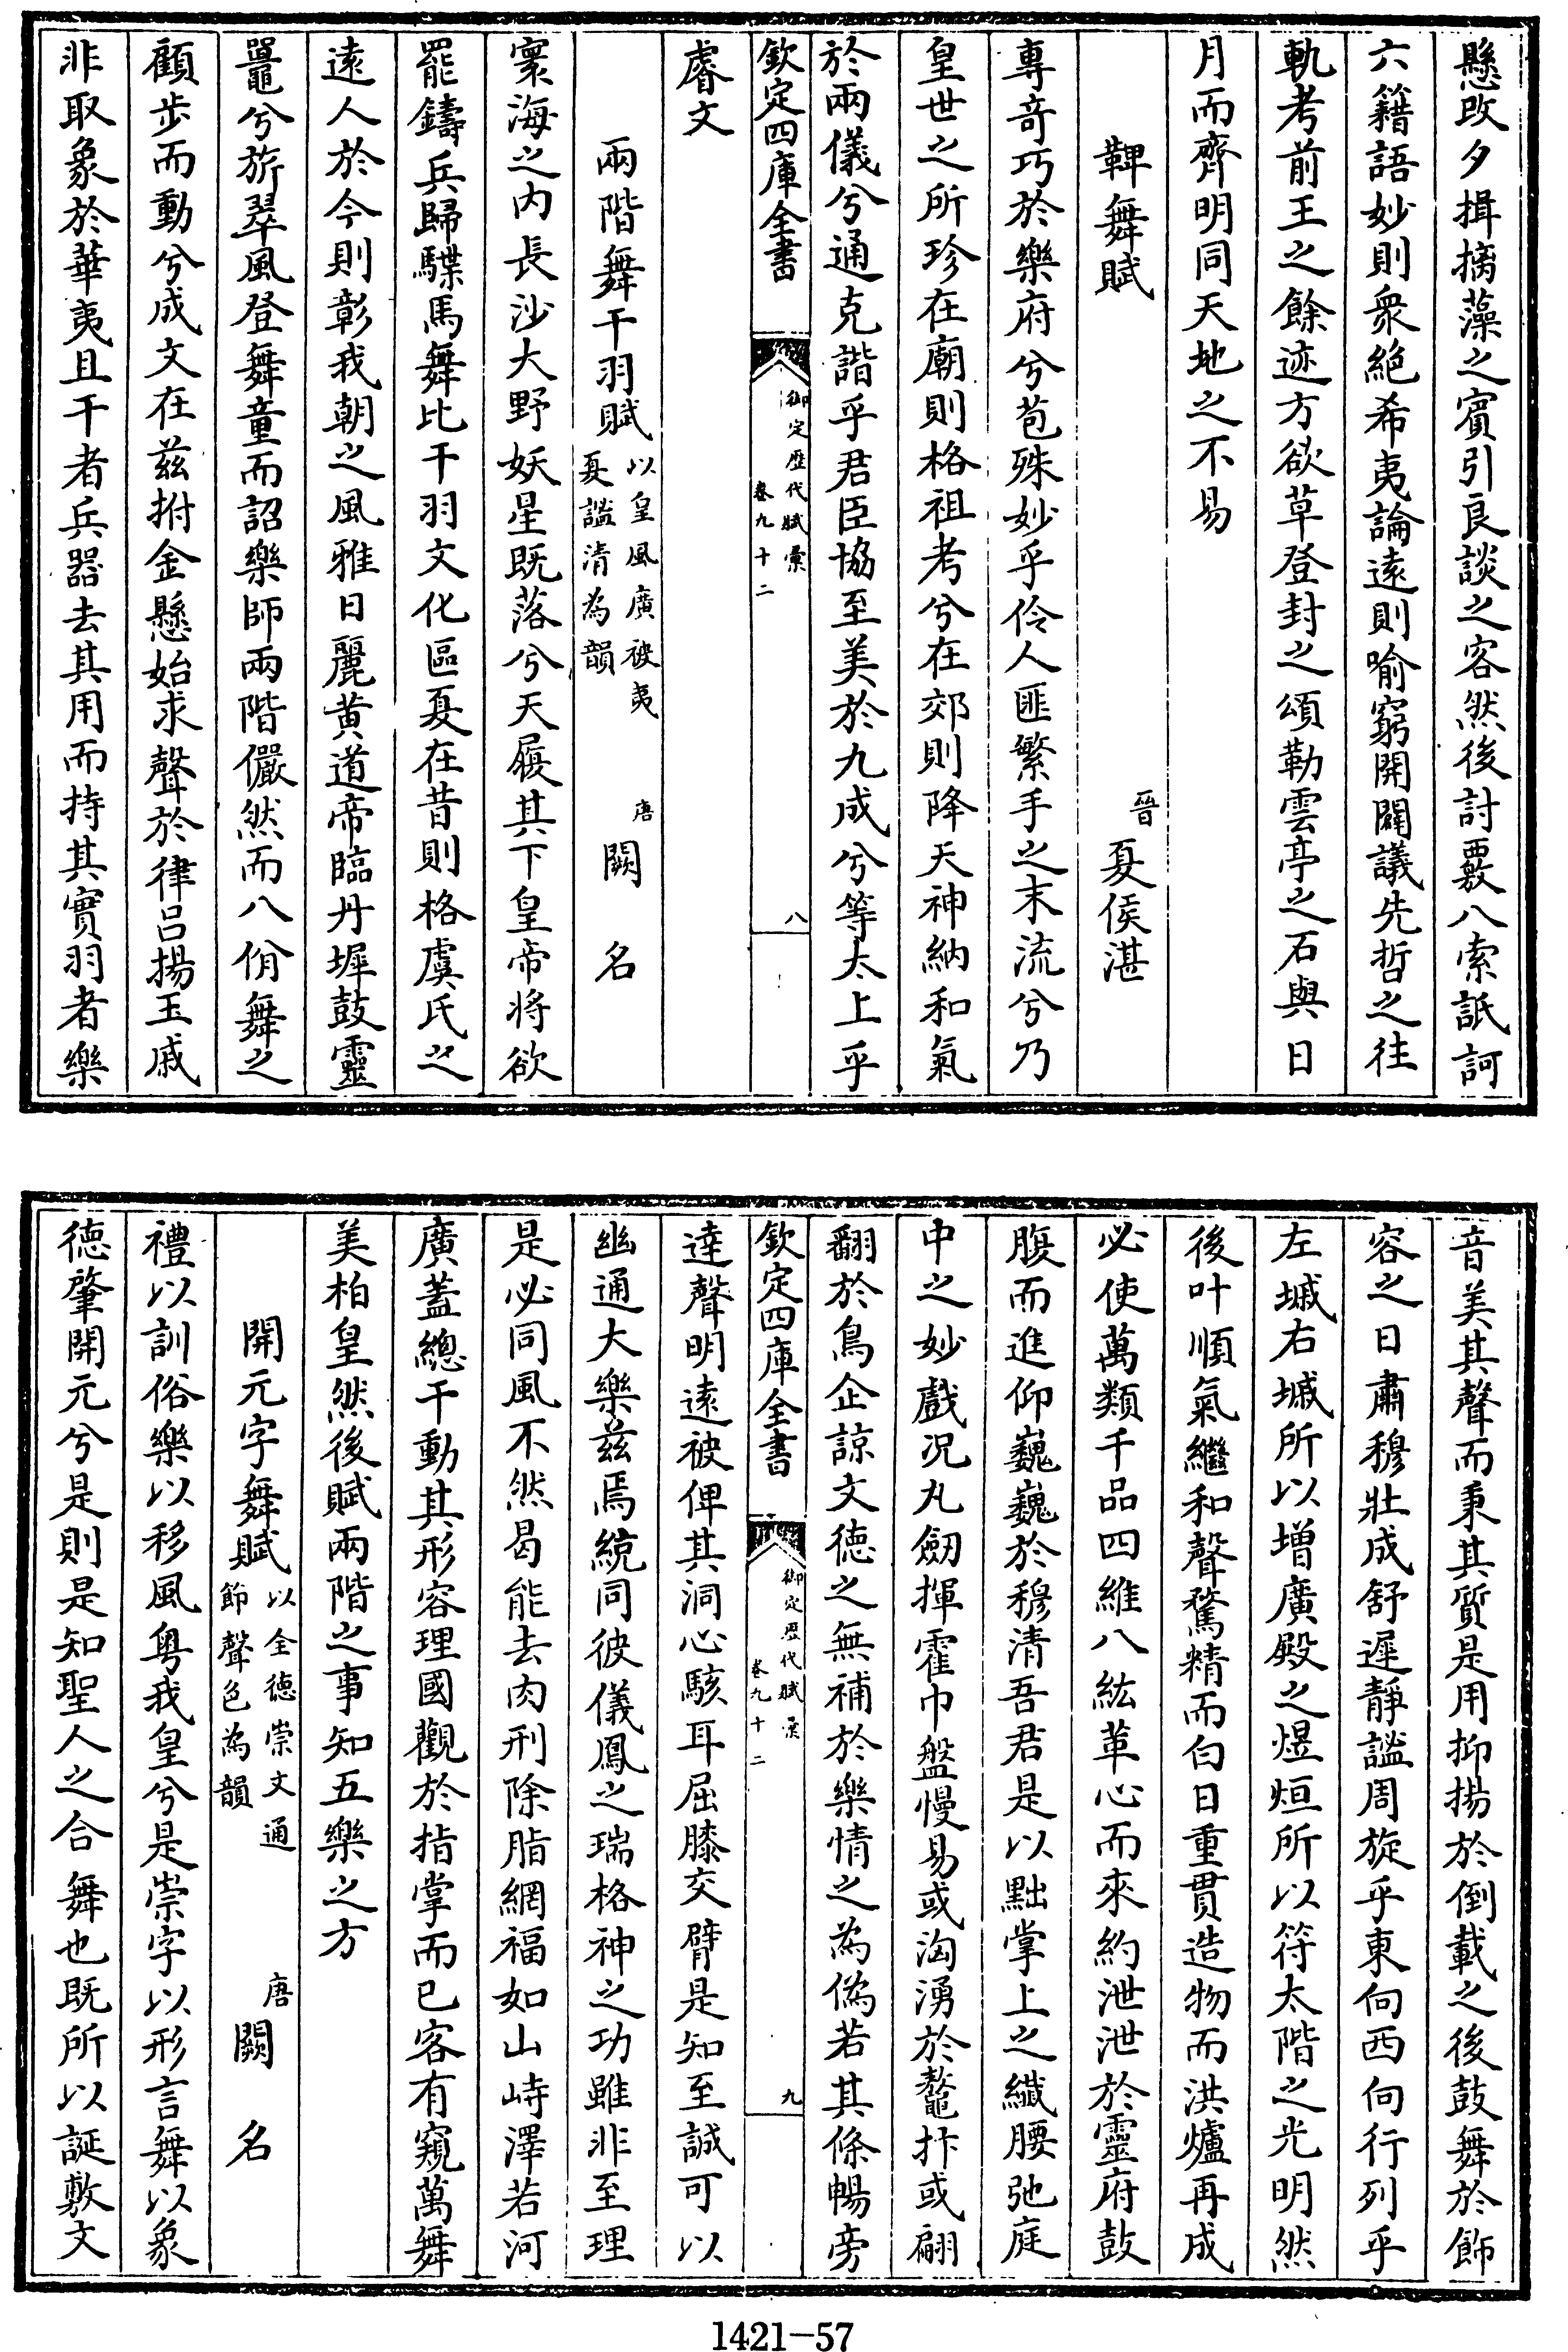 懸改夕揖摛藻之賓引良談之容然後討覈八索詆訶
六籍語妙則衆絶希夷論遠則喻窮開闢議先哲之往
軌考前王之餘迹方欲草登封之頌勒雲亭之石與日
月而齊明同天地之不易
鞞舞賦 晉夏侯湛
專奇巧於樂府兮苞殊妙乎伶人匪繁手之末流兮乃
皇世之所珍在廟則格祖考兮在郊則降天神納和氣
於兩儀兮通克諧乎君臣協至美於九成兮等太上乎
欽定四庫全書 御定歷代賦彙 卷九十二 八
睿文
兩階舞干羽賦 以皇風廣被夷夏謐清為韻 唐闕名
寰海之内長沙大野妖星既落兮天履其下皇帝将欲
罷鑄兵歸驜馬舞比干羽文化區夏在昔則格虞氏之
遠人於今則彰我朝之風雅日麗黄道帝臨丹墀鼓靈
鼉兮旂翠風登舞童而詔樂師兩階儼然而八佾舞之
顧步而動兮成文在兹拊金懸始求聲於律吕揚玉戚
非取象於華夷且干者兵器去其用而持其實羽者樂
音美其聲而秉其質是用抑揚於倒載之後鼓舞於飾
容之日肅穆壯成舒遲靜謐周旋乎東向西向行列乎
左墄右墄所以增廣殿之煜烜所以符太階之光明然
後叶順氣繼和聲騖精而白日重貫造物而洪爐再成
必使萬類千品四維八紘革心而來約泄泄於靈府鼓
腹而進仰巍巍於穆清吾君是以黜掌上之纎腰弛庭
中之妙戲况丸劒揮霍巾盤慢易或洶湧於鼇抃或翩
翻於鳥企諒文徳之無補於樂情之為偽若其條暢旁
欽定四庫全書 御定歷代賦彙 卷九十二 九
達聲明遠被俾其洞心駭耳屈膝交臂是知至誠可以
幽通大樂兹焉統同彼儀鳳之瑞格神之功雖非至理
是必同風不然曷能去肉刑除脂網福如山峙澤若河
廣蓋總干動其形容理國觀於指掌而已客有窺萬舞
美柏皇然後賦兩階之事知五樂之方
開元字舞賦 以全徳崇文通節聲色為韻 唐闕名
禮以訓俗樂以移風粤我皇兮是崇字以形言舞以象
徳肇開元兮是則是知聖人之合舞也既所以誕敷文
1421-57